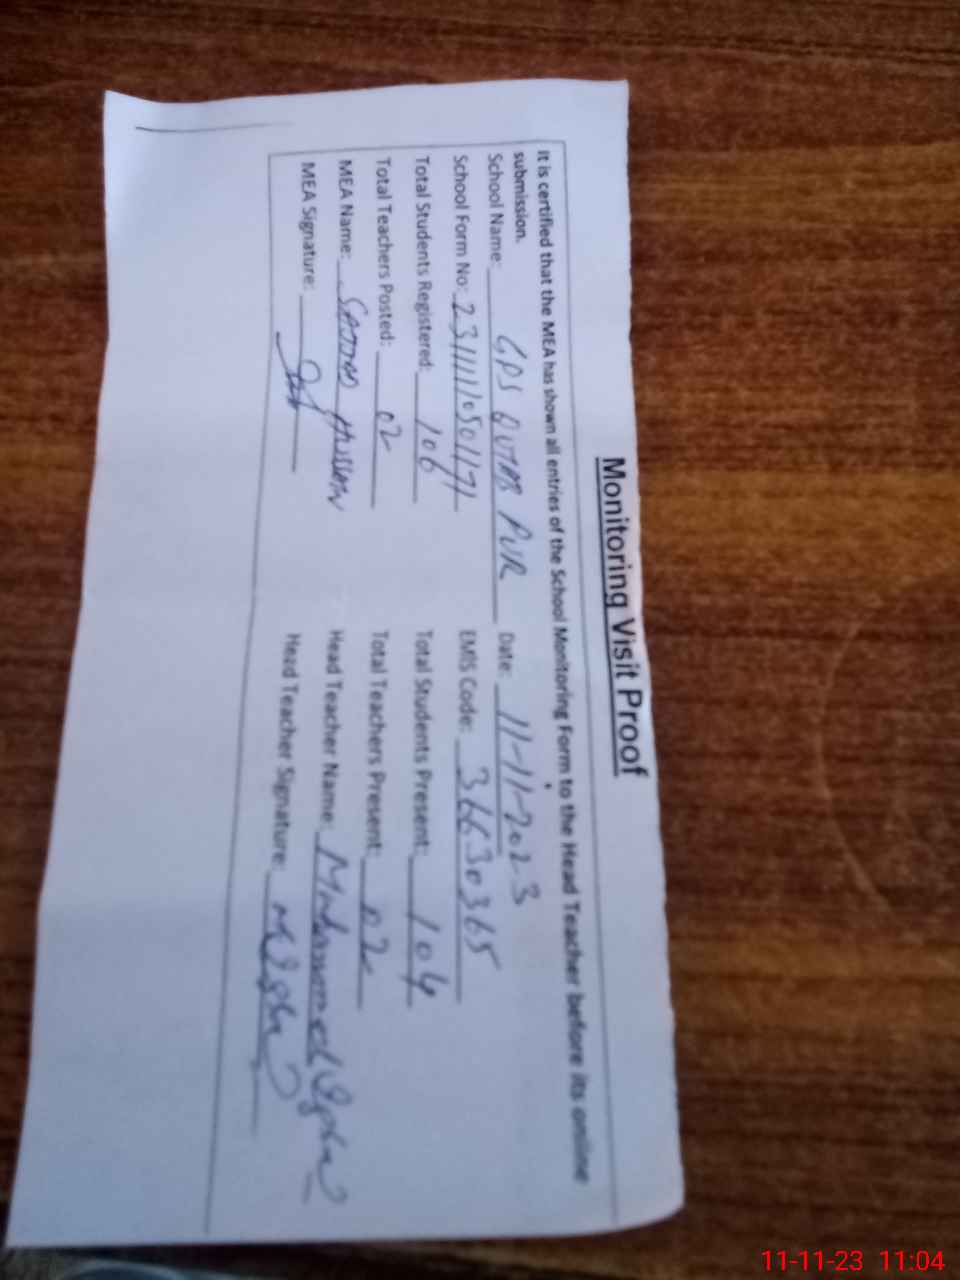 Monitoring Visit Proof
It is certified that the MEA has shown all entries of the School Monitoring Form to the Head Teacher before its online
submission.
School Name: GPS QUTAB PUR Date: 11-11-2023
School Form No: EMIS Code: 36630365
Total Students Registered: 106 Total Students Present: 104
Total Teachers Posted: 02 Total Teachers Present: 02
MEA Name: Hussain Head Teacher Name: Muhammad Iqbal
MEA Signature: Head Teacher Signature: M Iqbal
11-11-23 11:04